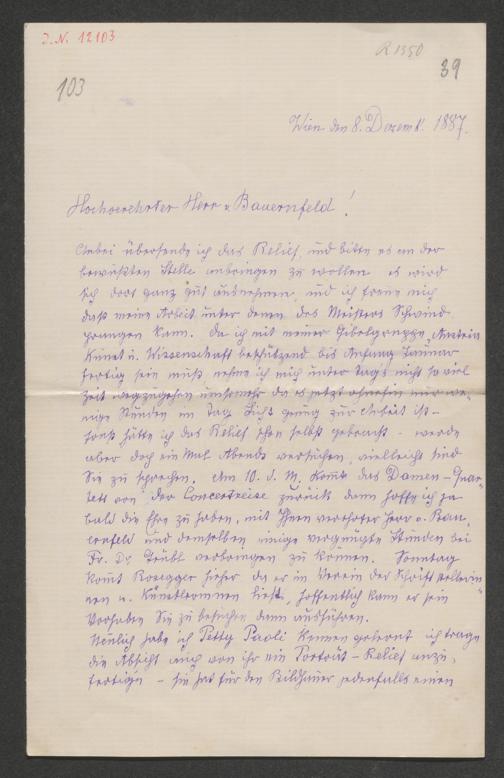 J. N. 12103
R 1350
39
103
Wien den 8. Dezemb. 1887.
Hochverehrter Herr v. Bauernfeld!
Anbei übersende ich das Relief, und bitte es an der
bewußten Stelle anbringen zu wollen es wird
sich dort ganz gut ausnehmen, und ich freue mich
daß meine Arbeit unter denen des Meisters Schwind
prangen kann. Da ich mit meiner Gibelgruppe, Austria
Kunst u. Wissenschaft beschützend bis Anfang Jannar
fertig sein muß nehme ich mich unter Tags nicht so viel
Zeit wegzugehen umsomehr da es jetzt ohnehin nur we-
nige Stunden im Tag Licht genug zur Arbeit ist –
sonst hätte ich das Relief schon selbst gebracht – werde
aber doch ein Mal Abends versuchen, vielleicht sind
Sie zu sprechen. Am 10. d. M. komt das Damen-Quar-
tett von der Concertreise zurück dann hoffe ich ja
bald die Ehre zu haben, mit Ihnen verehrter Herr v. Bau-
ernfeld und denselben einige vergnügte Stunden bei
Fr. Dr. Teubl verbringen zu können. Sonntag
komt Rosegger hieher da er im Verein der Schriftstellerin-
nen u. Künstlerinnen liest, hoffentlich kann er sein
Vorhaben Sie zu besuchen dann ausführen.
Neulich habe ich Betty Paoli kennen gelernt ich trage
die Absicht auch von ihr ein Porträt-Relief anzu-
fertigen – sie hat für den Bildhauer jedenfalls einen